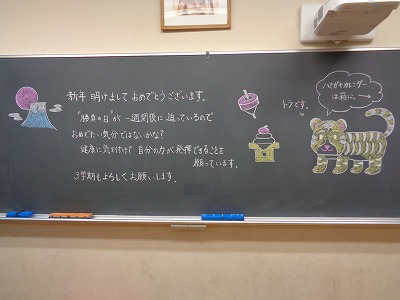 新年 明けまして おめでとうございます。
"勝負の日"が 一週間後に 迫っているので
おめでたい気分ではないかな?
健康に気を付けて 自分の力が発揮できることを
願っています。
3学期もよろしくお願いします。
トラです。
ハミガキカレンダー
は箱に。